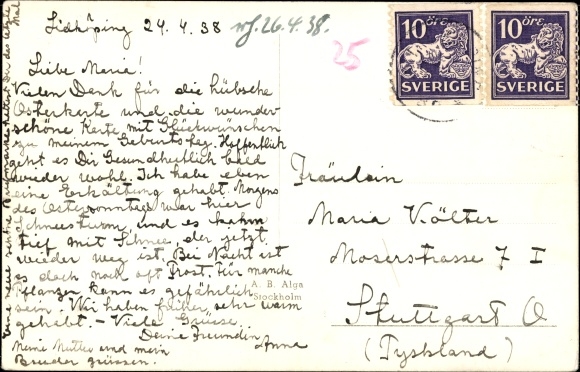 Lidköping 24.4.38
rf. 26.4.38.
25
10 ÖRE
SVERIGE
10 ÖRE
SVERIGE
Liebe Maria!
Vielen Dank für die hübsche
Osterkarte und die wunder-
schöne Karte mit Glückwünschen
zu meinem Geburtstag. Hoffentlich
geht es Dir Gesundheitlich bald
wieder wohl. Ich habe eben
eine Erkältung gehabt. Morgens
des Ostersonntag war hier
Schneesturm, und es kahm
tief mit Schnee, der jetzt
wieder weg ist. Bei Nacht ist
es doch noch oft Frost. Für manche
Pflanzen kann es gefährlich
sein. Wir haben früher sehr warm
gehabt. – Viele Grüsse.
Deine Freundin
Anna
Meine Mutter und mein
Bruder grüssen.
Eine neue schöne Briefmarke
Dir das letzte
Mal
A. B. Alga
Stockholm
Fräulein
Maria Völter
Moserstrasse 7 I
Stuttgart O
(Tyskland)